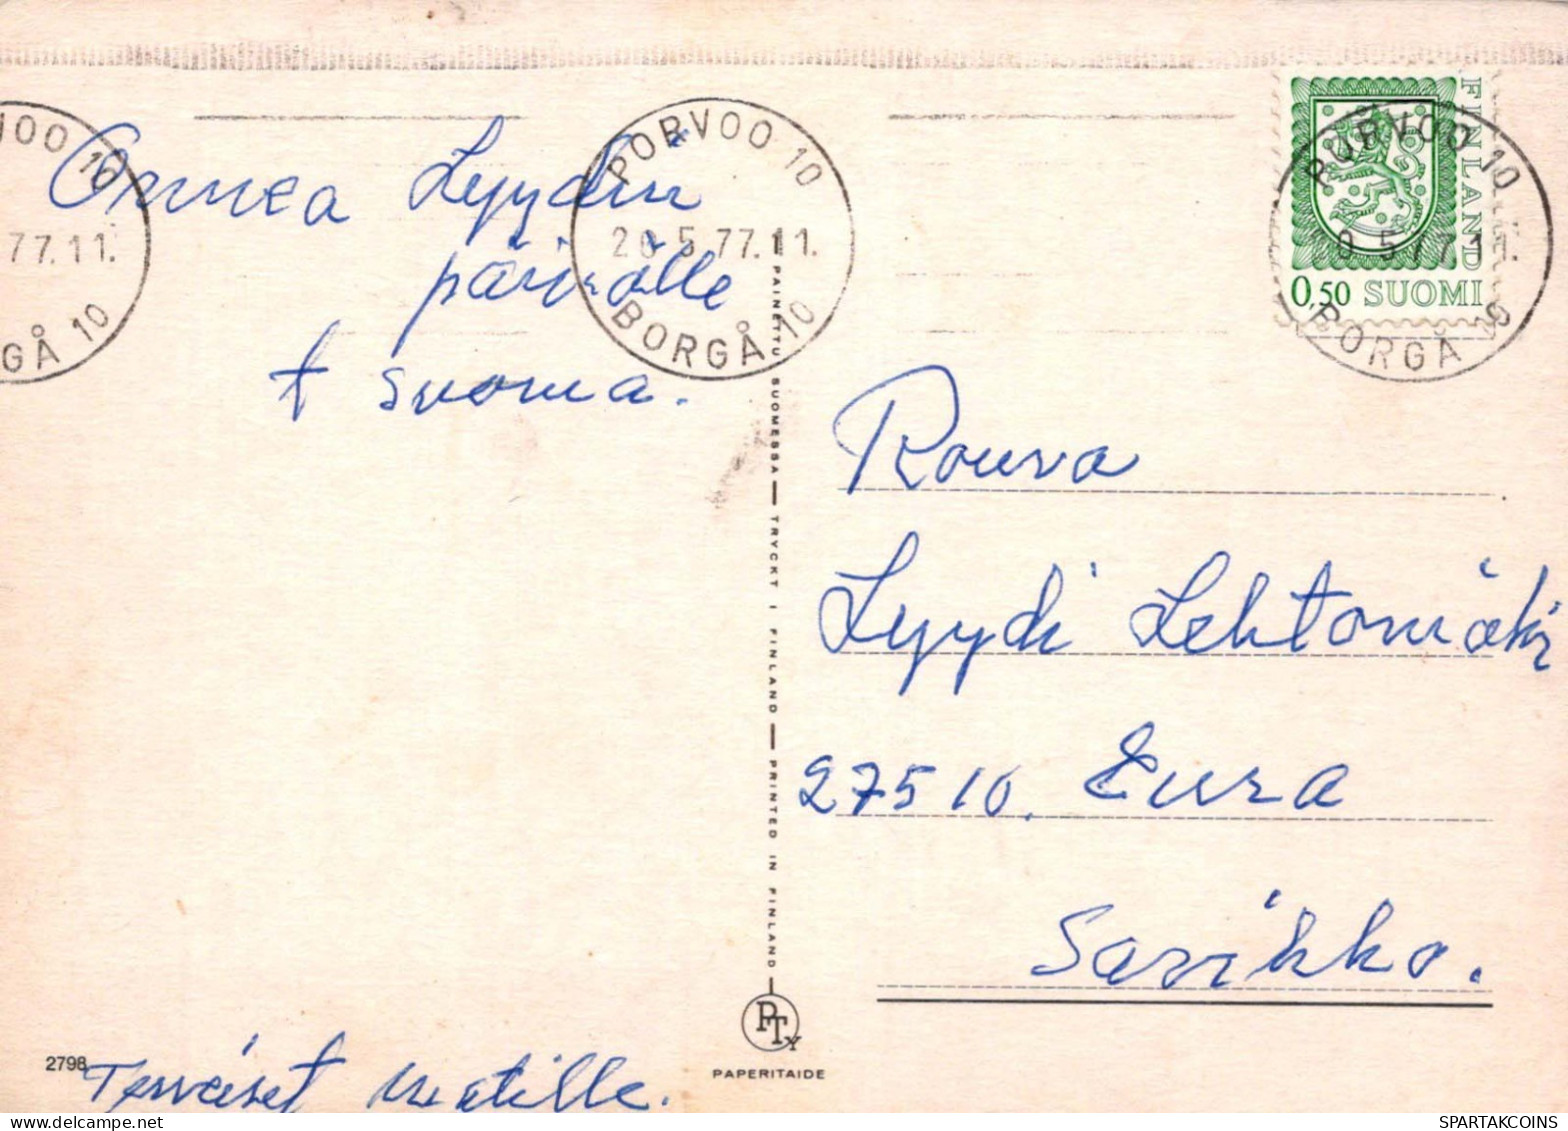 PORVOO 10
20.5.77.11.
BORGÅ 10
VOO 10
77.11.
GÅ 10
FINLAND
0,50 SUOMI
PORVOO 10
0.5.77.11.
BORGÅ 10
Onnea Lyydin
päivälle
t suoma.
Terveiset
2798
PAINETTU SUOMESSA — TRYCKT I FINLAND — PRINTED IN FINLAND
PTY
PAPERITAIDE
Rouva
Lyydi Lehtomäki
27510. Eura
Sorikko.
SPARTAKCOINS